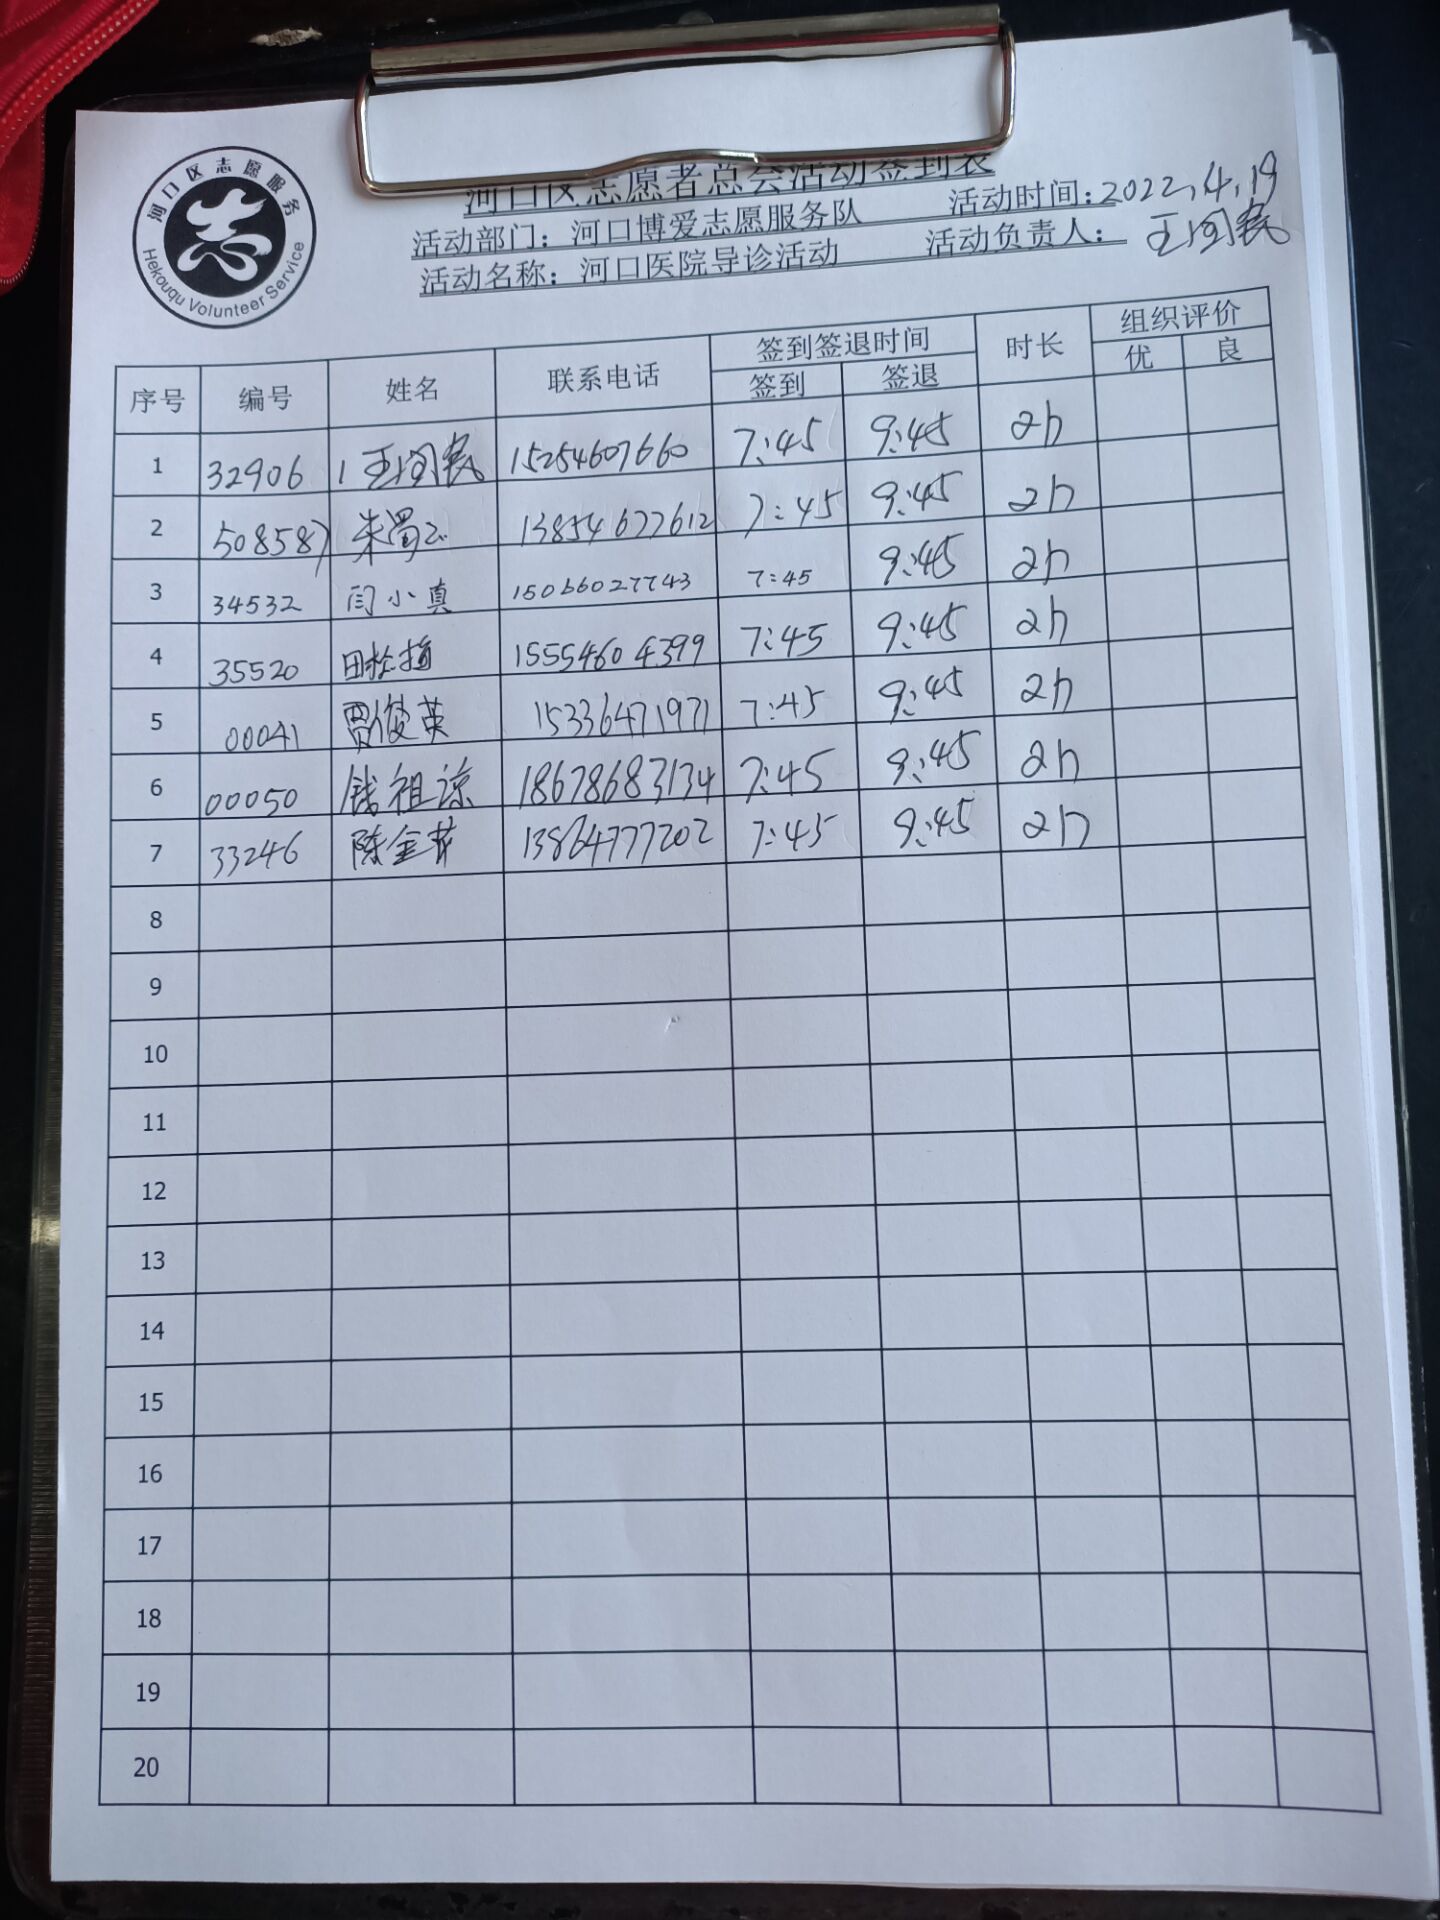 河口区志愿服务
Hekouqu Volunteer Service
河口区志愿者总会活动签到表
活动部门：河口博爱志愿服务队 活动时间：2022.4.19
活动名称：河口医院导诊活动 活动负责人：王
序号 编号 姓名 联系电话 签到签退时间 时长 组织评价
签到 签退 优 良
1 32906 王 15254607660 7:45 9:45 2h
2 508587 朱 13854677612 7:45 9:45 2h
3 34532 闫小真 15066027743 7:45 9:45 2h
4 35520 田 15554604399 7:45 9:45 2h
5 00041 贾俊英 15336471971 7:45 9:45 2h
6 00050 钱祖谅 18678683134 7:45 9:45 2h
7 33246 陈金 13864777202 7:45 9:45 2h
8
9
10
11
12
13
14
15
16
17
18
19
20